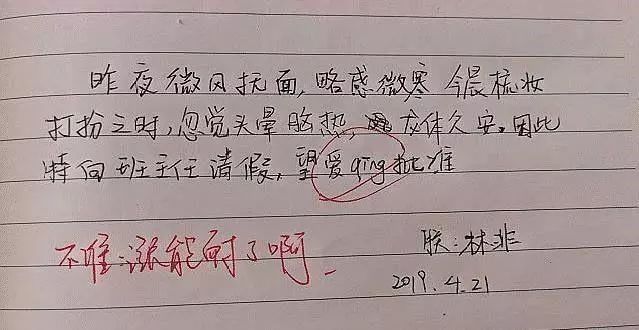 昨夜微风抚面,略感微寒 今晨梳妆
打扮之时,忽觉头晕脑热, 龙体欠安。因此
特向班主任请假,望爱qing批准
朕:林非
不准:涨能耐了啊
2019.4.21